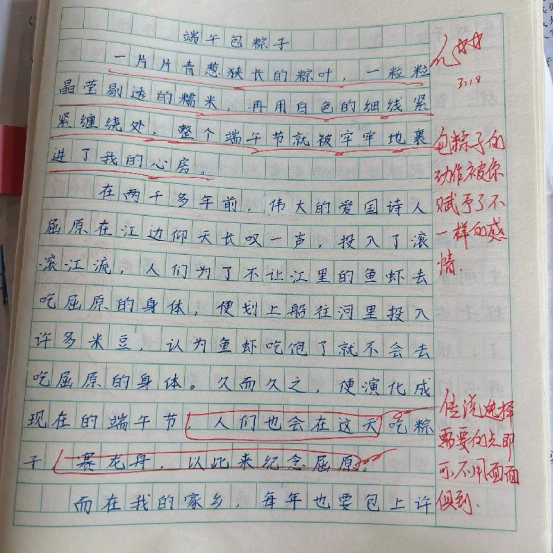 端午包粽子
一片片青葱狭长的粽叶，一粒粒
晶莹剔透的糯米，再用白色的细线紧
紧缠绕处，整个端午节就被牢牢地裹
进了我的心房。
在两千多年前，伟大的爱国诗人
屈原在江边仰天长叹一声，投入了滚
滚江流，人们为了不让江里的鱼虾去
吃屈原的身体，便划上船往河里投入
许多米豆，认为鱼虾吃饱了就不会去
吃屈原的身体。久而久之，便演化成
现在的端午节，人们也会在这天吃粽
子，赛龙舟，以此来纪念屈原。
而在我的家乡，每年也要包上许
包粽子的
动作被你
赋予了不
一样的感
情
传说选择
需要的点即
可，不用面面
俱到.